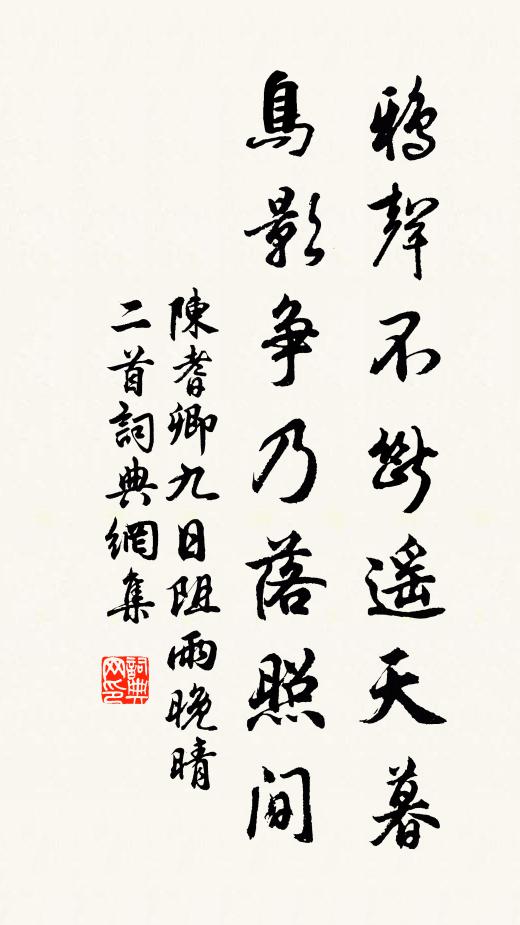 鴉聲不斷遥天暮
鳥影争乃落照間
陳耆卿九日阻雨晚晴
二首詞典網集
詞典网印